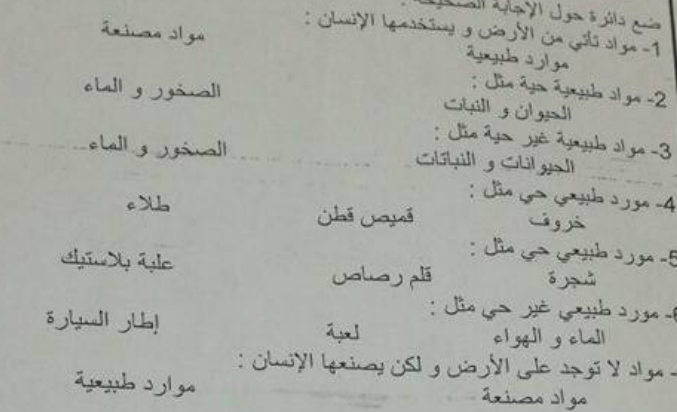 ضع دائرة حول الإجابة الصحيحة :
1- مواد تأتي من الأرض و يستخدمها الإنسان :
موارد طبيعية مواد مصنعة
2- مواد طبيعية حية مثل :
الحيوان و النبات الصخور و الماء
3- مواد طبيعية غير حية مثل :
الحيوانات و النباتات الصخور و الماء
4- مورد طبيعي حي مثل :
خروف قميص قطن طلاء
5- مورد طبيعي حي مثل :
شجرة قلم رصاص علبة بلاستيك
6- مورد طبيعي غير حي مثل :
الماء و الهواء لعبة إطار السيارة
- مواد لا توجد على الأرض و لكن يصنعها الإنسان :
مواد مصنعة موارد طبيعية